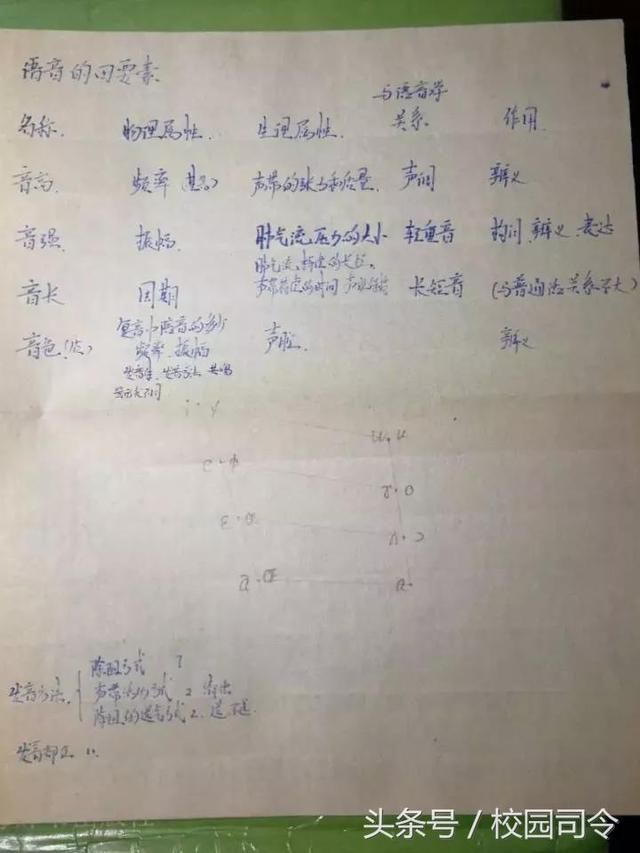 语音的四要素
与语音学
名称 物理属性 生理属性 关系 作用
音高 频率 声带的张力和质量 声调 辨义
音强 振幅 肺气流压力的大小 轻重音 构词、辨义、表达
肺气流、持续的长短、
音长 周期 声带 的时间 长短音 (与普通话关系不大)
复音中陪音的多少
音色 频率、振幅 声腔 辨义
发音体、发音方法、共鸣
i · y
ɯ · u
e · ø
ɤ · o
ɛ · œ
ʌ · ɔ
a · Œ
ɑ ·
除阻方式 7
发音方法 声带 方式 2
除阻的送气方式 2、送、不送
发音部位 11
头条号 / 校园司令